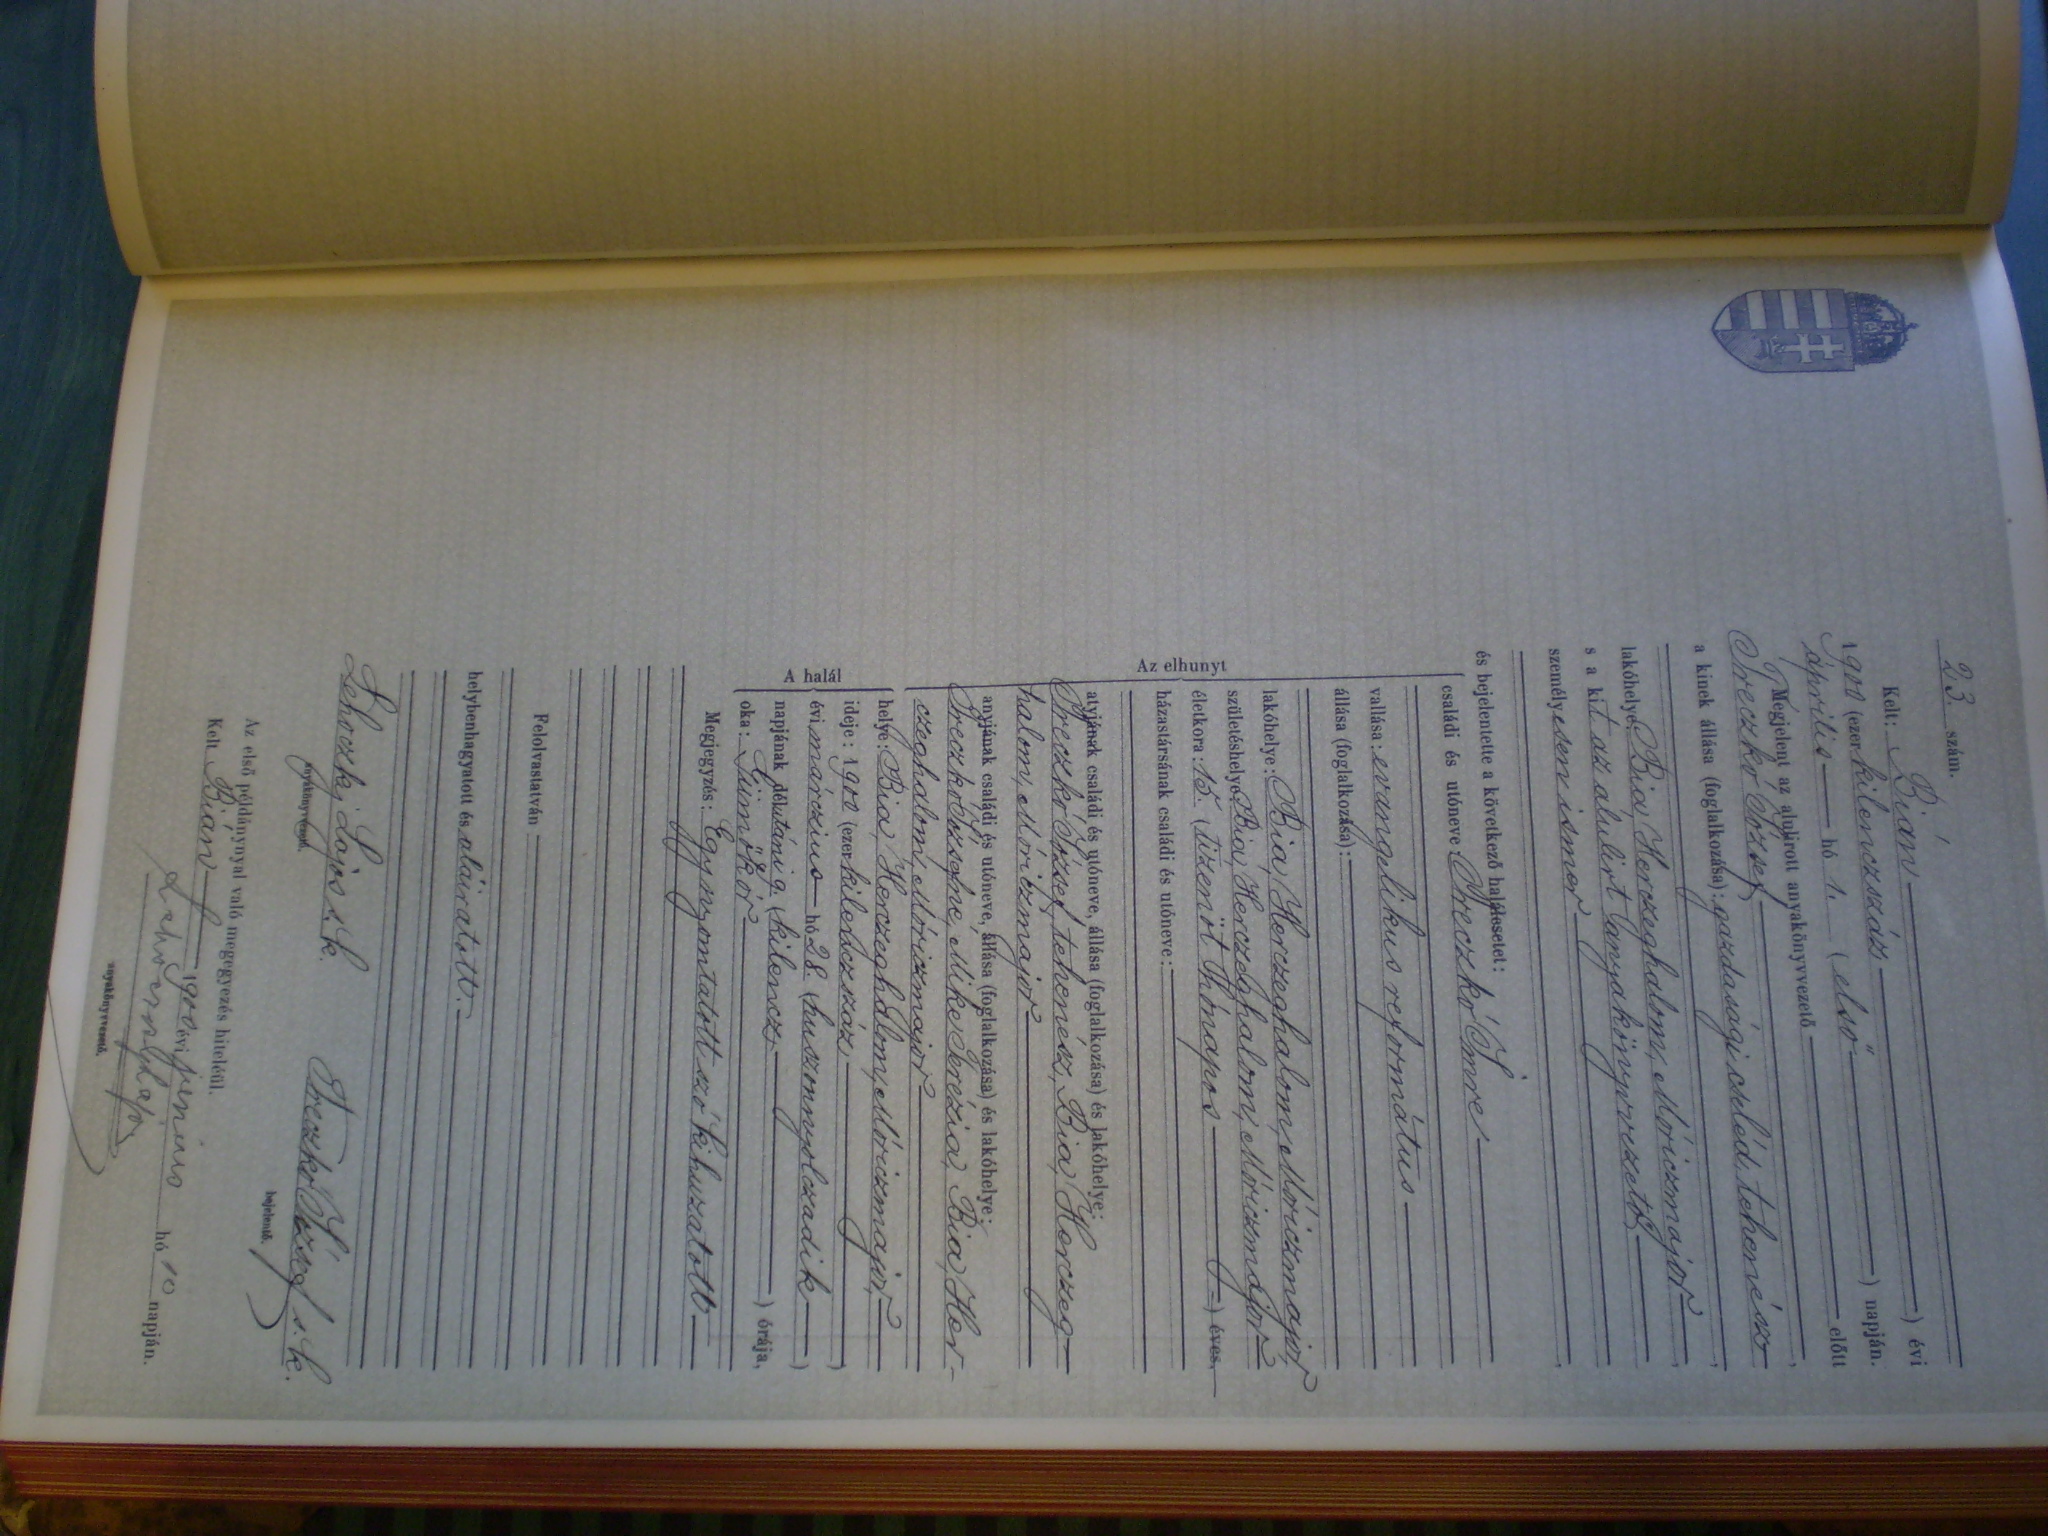 23. szám.
Kelt: Bián ) évi
1900 (ezer kilenczszáz ) napján.
április hó 1. (első
Megjelent az alulirott anyakönyvvezető előtt
Treczkó József,
a kinek állása (foglalkozása): gazdasági cseléd, tehenész
lakóhelye Bia, Herczeghalom, Móriczmajor
s a kit az alulirt anyakönyvvezető
személyesen ismer
és bejelentette a következő halálesetet:
családi és utóneve Treczkó Imre,
vallása: evangelikus református
állása (foglalkozása):
Az elhunyt
lakóhelye: Bia, Herczeghalom, Móriczmajor,
születéshelye Bia, Herczeghalom, Móriczmajor
életkora: 15. (tizenöt hónapos ) éves,
házastársának családi és utóneve:
atyjának családi és utóneve, állása (foglalkozása) és lakóhelye:
Treczkó József, tehenész, Bia, Herczeg-
halom, Móriczmajor
anyjának családi és utóneve, állása (foglalkozása) és lakóhelye:
Treczkó Józsefné, Mike Terézia, Bia, Her-
czeghalom, Móriczmajor
A halál
helye: Bia, Herczeghalom, Móriczmajor,
ideje: 1900 (ezer kilenczszáz )
évi márczius hó 28. (huszonnyolczadik )
napjának délutáni 9. (kilencz, ) órája,
oka: Gümőkór
Megjegyzés: Egy nyomtatott szó kihuzatott.
Felolvastatván
helybenhagyatott és aláiratott.
Lehoczky Lajos s. k.
anyakönyvvezető.
Treczkó József s. k.
bejelentő.
Az első példánynyal való megegyezés hiteléül.
Kelt Bián 1900 évi június hó 10 napján.
anyakönyvvezető.